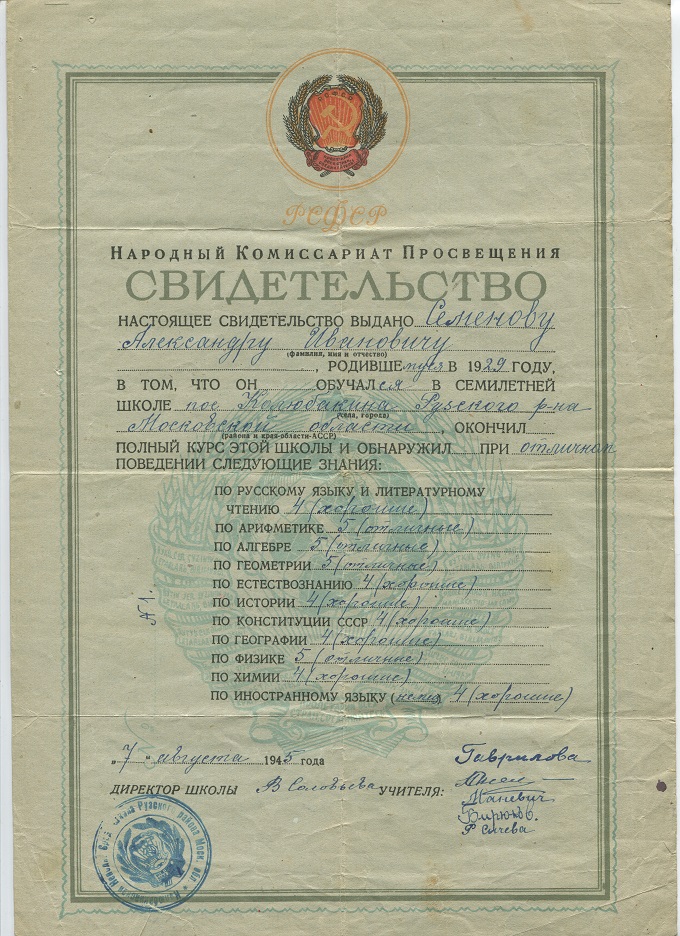 РСФСР
НАРОДНЫЙ КОМИССАРИАТ ПРОСВЕЩЕНИЯ
СВИДЕТЕЛЬСТВО
НАСТОЯЩЕЕ СВИДЕТЕЛЬСТВО ВЫДАНО Семенову
Александру Ивановичу
(фамилия, имя и отчество)
, РОДИВШЕМУСЯ В 1929 ГОДУ,
В ТОМ, ЧТО ОН ОБУЧАЛСЯ В СЕМИЛЕТНЕЙ
ШКОЛЕ пос Колюбакина Рузского р-на
(села, города)
Московской области, ОКОНЧИЛ
(района и края-области-АССР)
ПОЛНЫЙ КУРС ЭТОЙ ШКОЛЫ И ОБНАРУЖИЛ ПРИ отличном
ПОВЕДЕНИИ СЛЕДУЮЩИЕ ЗНАНИЯ:
ПО РУССКОМУ ЯЗЫКУ И ЛИТЕРАТУРНОМУ
ЧТЕНИЮ 4 (хорошие)
ПО АРИФМЕТИКЕ 5 (отличные)
ПО АЛГЕБРЕ 5 (отличные)
ПО ГЕОМЕТРИИ 5 (отличные)
ПО ЕСТЕСТВОЗНАНИЮ 4 (хорошие)
ПО ИСТОРИИ 4 (хорошие)
ПО КОНСТИТУЦИИ СССР 4 (хорошие)
ПО ГЕОГРАФИИ 4 (хорошие)
ПО ФИЗИКЕ 5 (отличные)
ПО ХИМИИ 4 (хорошие)
ПО ИНОСТРАННОМУ ЯЗЫКУ (немец) 4 (хорошие)
№ 1.
„7" августа 1945 года
ДИРЕКТОР ШКОЛЫ В Соловьева УЧИТЕЛЯ:
Гаврилова
Маневич
Бирюков.
Р Сичева